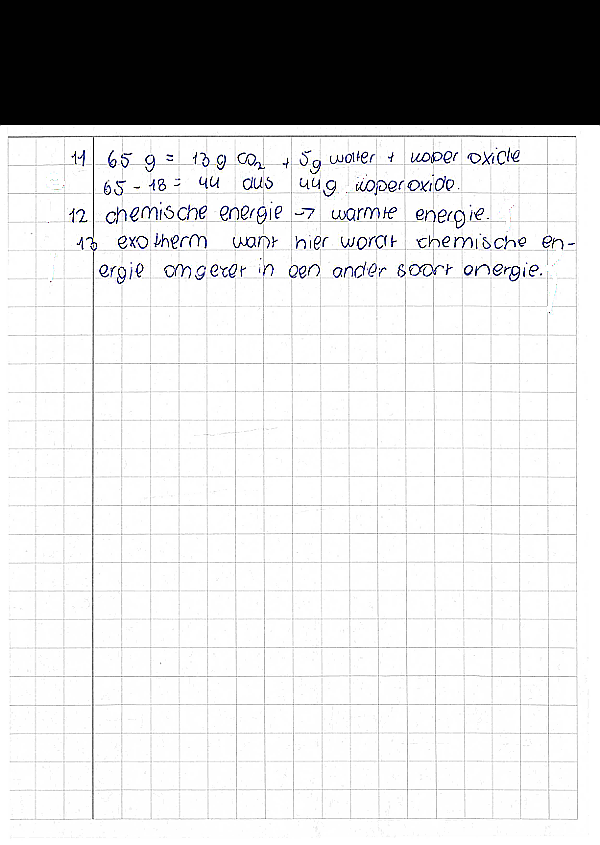 11 65 g = 13 g CO2 + 5g water + koper oxide
65 - 18 = 44 dus 44g koperoxide.
12 chemische energie -> warmte energie.
13 exotherm want hier wordt chemische en-
ergie omgezet in een ander soort energie.